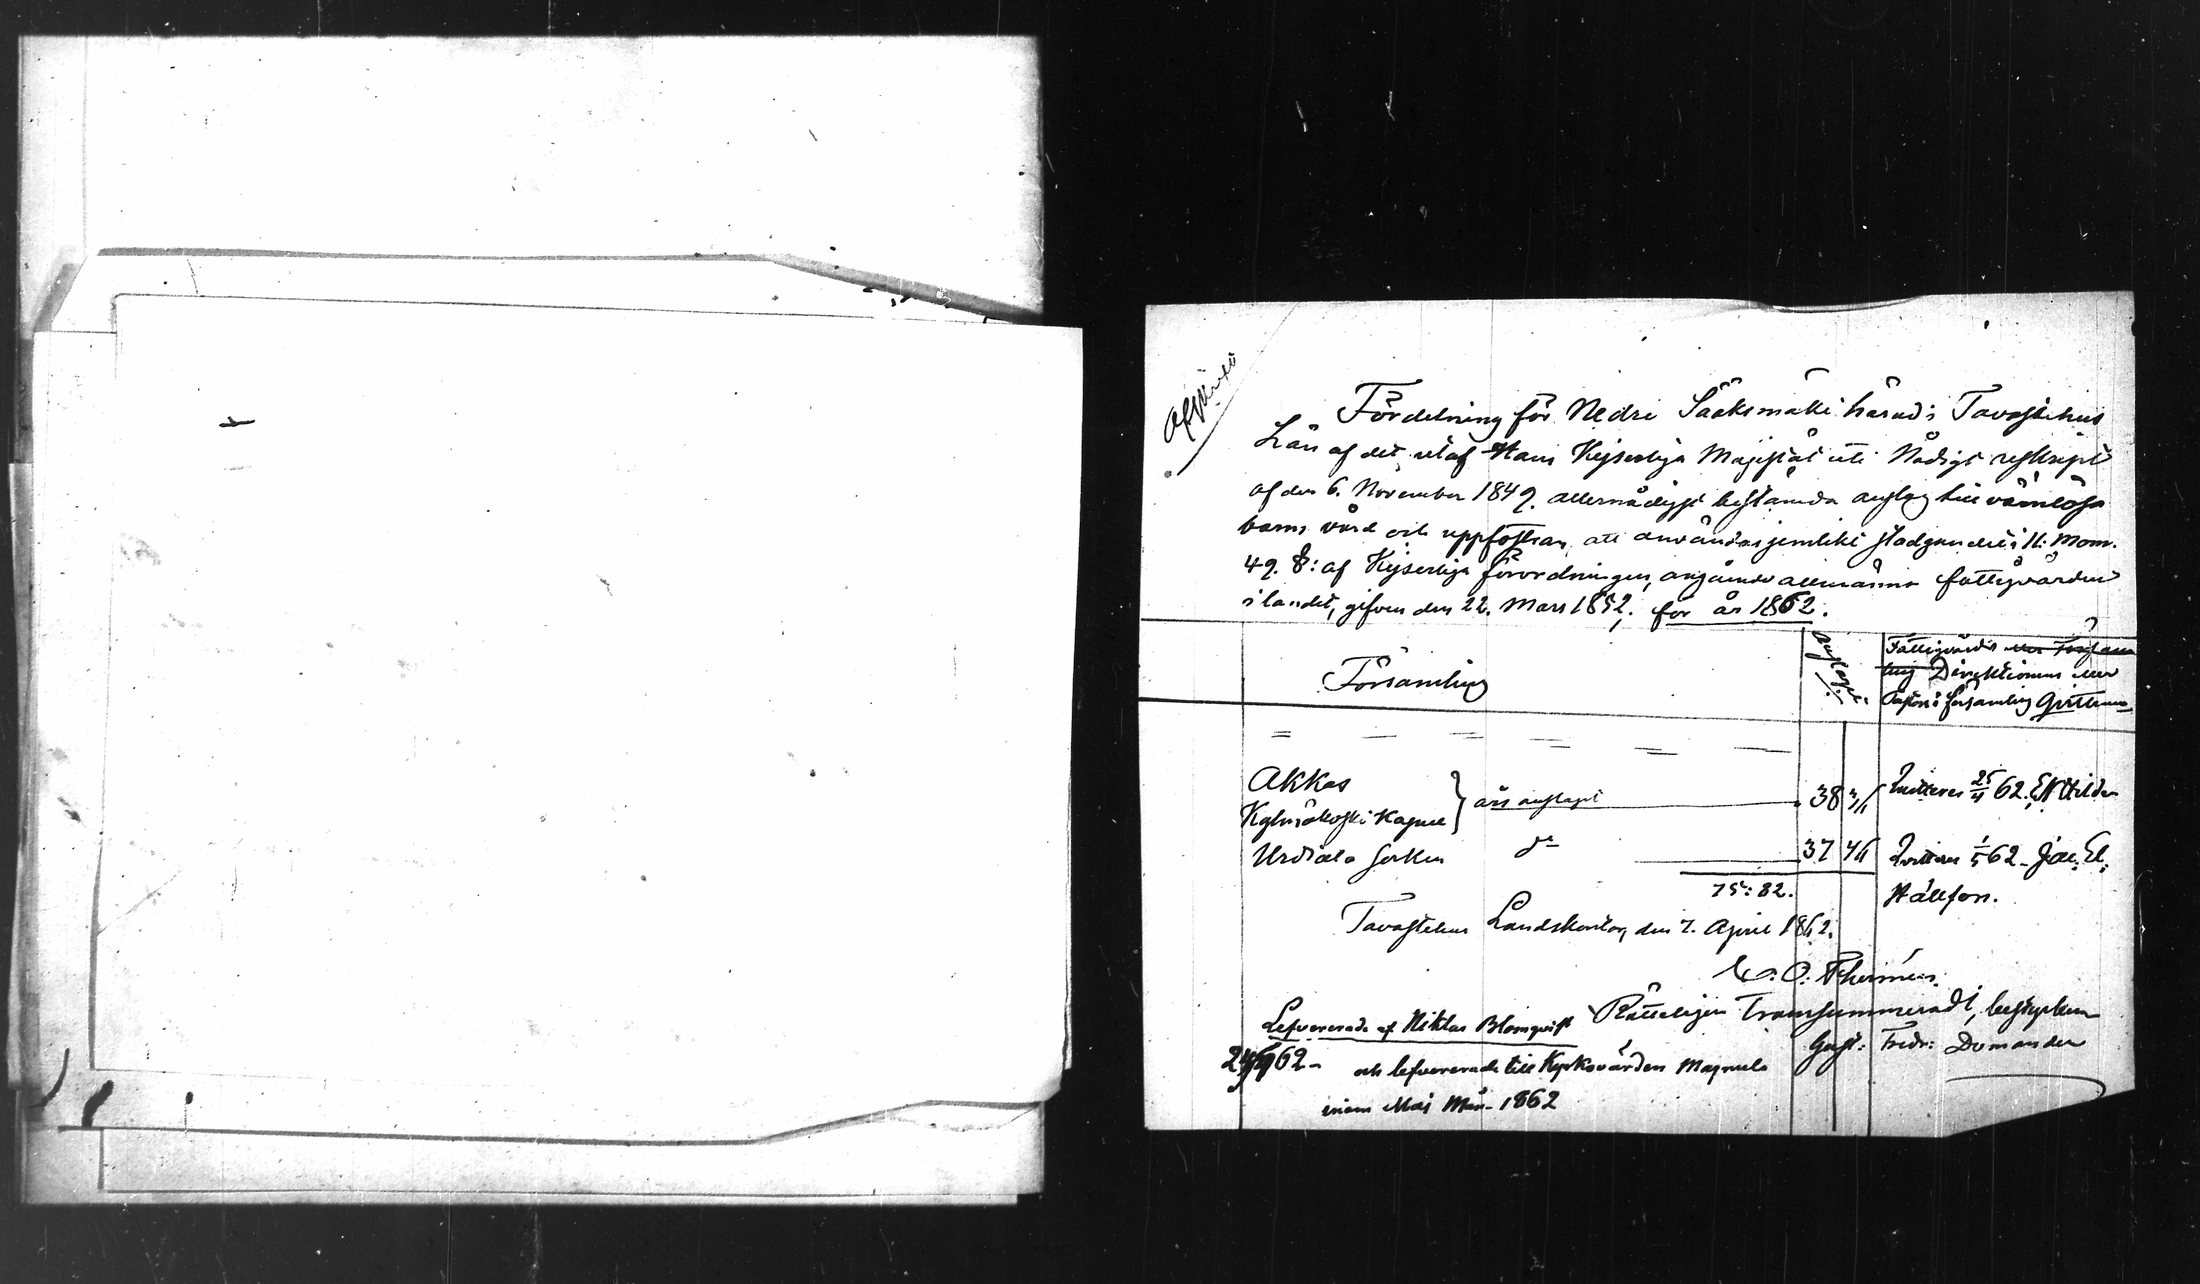 Afskrift
Fördelning för Nedre Sääksmäki härad i Tavastehus
Län af det, utaf Hans Kejserliga Majestät uti Nådigt reskript
af den 6. November 1849. allernådigst bestämda anslag till värnlösa
barns vård och uppfostran, att användas jemlikt stadgandet i 11. Mom.
49. §: af Kejserliga förordningen, angående allmänna fattigvården
i landet, gifven den 22. Mars 1852; för år 1862.
Församling
Anslaget.
Fattigvårds eller Försam
ling Direktionens eller
Pastors i församling Qvittence
Akkas
Kylmäkoski Kapell } års anslaget 38
Qvitteras 25/4 62. E. N. Hilden
Urdiala Socken do 37
Qvitteras 1/5 62. Joh. El.
Hällfors.
75: 82.
Tavastehus Landskontor, den 7. April 1862.
C. O.
Rätteligen Transsummeradt, bestyrker
Gust: Fredr: Domander
Lefvererade af Niklas Blomqvist
62 - och lefvererade till Kyrkovärden Magnula
innom Maj Mån. 1862